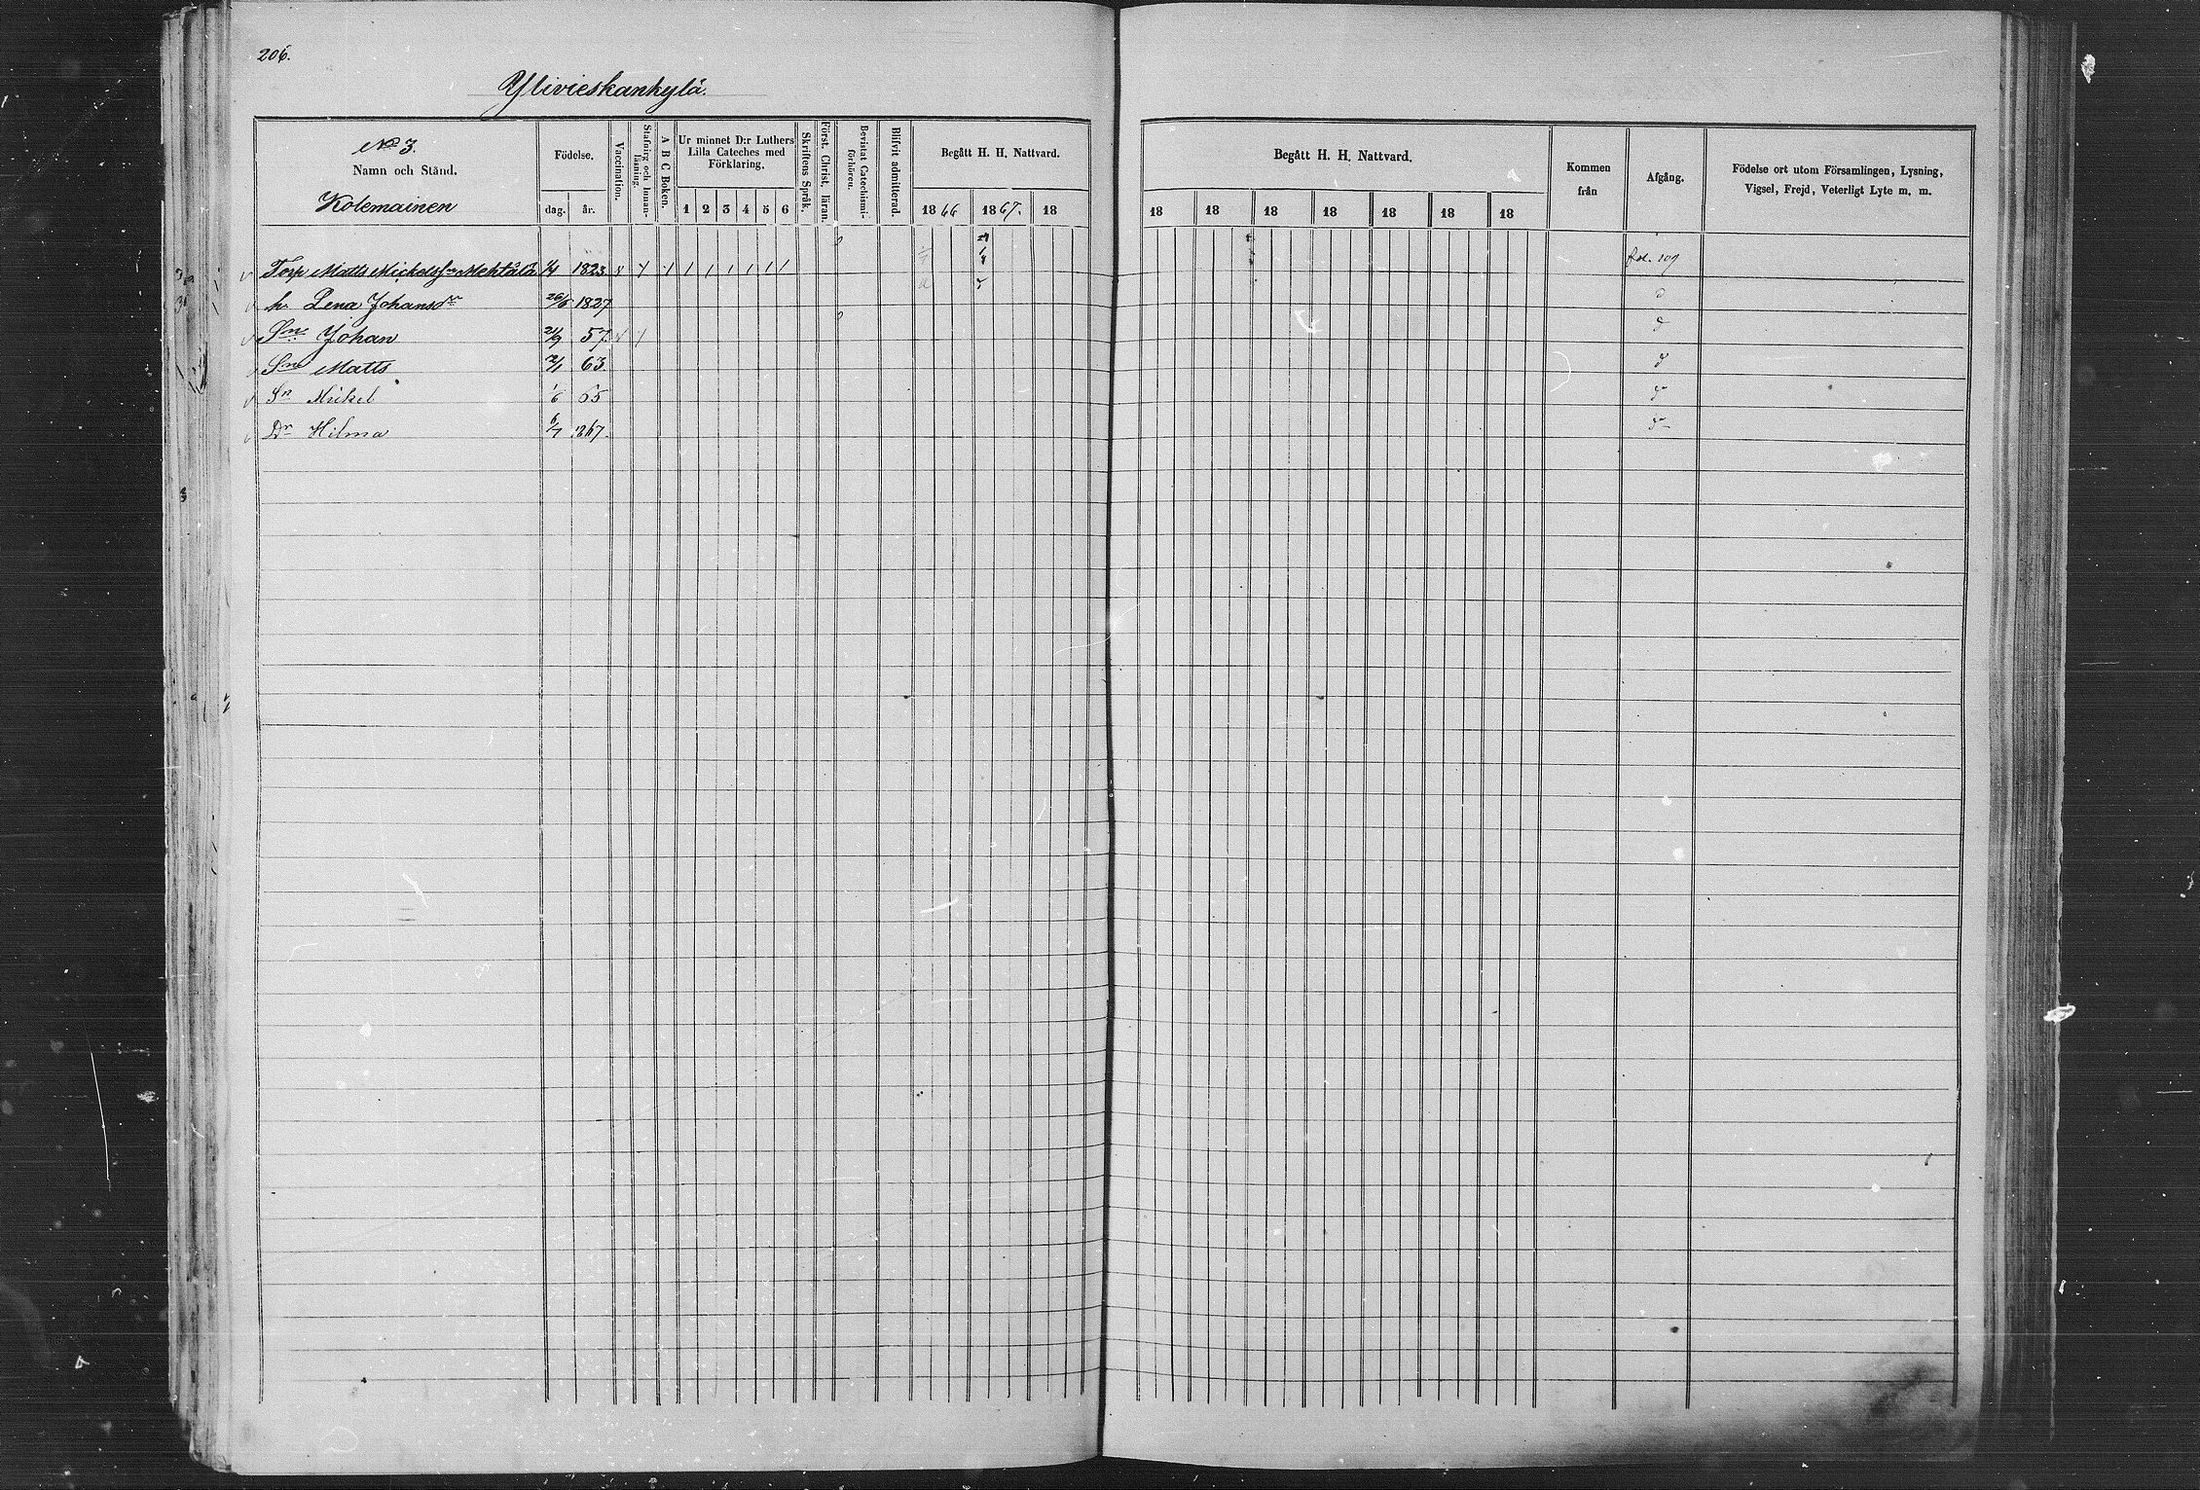 206.
Ylivieskankylä.
No 3.
Namn och Stånd.
Kolemainen
Födelse.
dag. år.
Vaccination.
Stafning och Innanläsning.
A B C Boken.
Ur minnet D:r Luthers Lilla Cateches med Förklaring.
1 2 3 4 5 6
Skriftens Språk.
Först. Christ. läran.
Bevistat Catechismiförhören.
Blifvit admitterad.
Begått H. H. Nattvard.
1866 1867. 18
Begått H. H. Nattvard.
18 18 18 18 18 18 18
Kommen från
Afgång.
Födelse ort utom Församlingen, Lysning, Vigsel, Frejd, Veterligt Lyte m. m.
Torp Matts Mickelsson Mehtälä 1/4 1823 fol. 109
h. Lena Johansdr 26/8 1827 d
Sn Johan 21/9 57 d
Sn Matts 2/1 63 d
Sn Mickel 1/6 65 d
Dr Hilma 6/7 1867. d